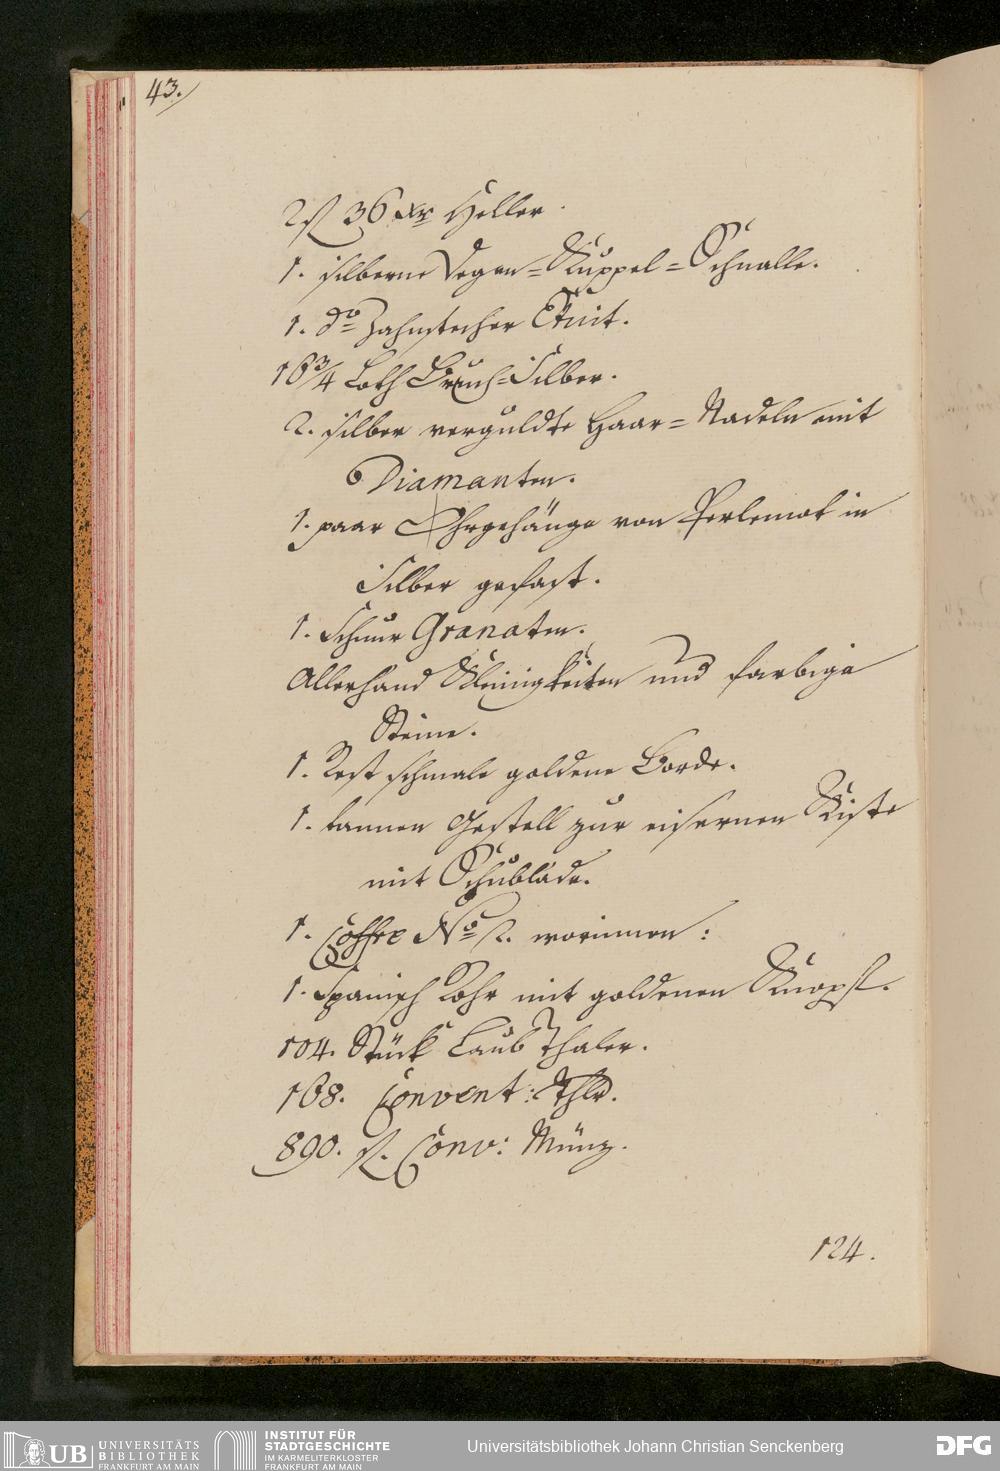 43.
2 fl 36 Xr Heller.
1. silberne Degen=Kuppel=Schnalle.
1. do Zahnstecher Etuit.
16 3/4 Loth Bruch=Silber.
2. silber verguldte Haar=Nadeln mit
Diamanten.
1. paar Ohrgehänge von Perlemot in
Silber gefast.
1. Schnur Granaten.
Allerhand Kleinigkeiten und farbige
Steine.
1. Rest schmale goldene Borde.
1. tannen Gestell zur eisernen Kiste
mit Schublade.
1. Coffre No 2. worinnen:
1. Spanisch Rohr mit goldenen Knopf.
104. Stück Laub Thaler.
168. Convent: Thlr.
890. fl. Conv: Münz.
124.
UB UNIVERSITÄTS
BIBLIOTHEK
FRANKFURT AM MAIN
INSTITUT FÜR
STADTGESCHICHTE
IM KARMELITERKLOSTER
FRANKFURT AM MAIN
Universitätsbibliothek Johann Christian Senckenberg
DFG